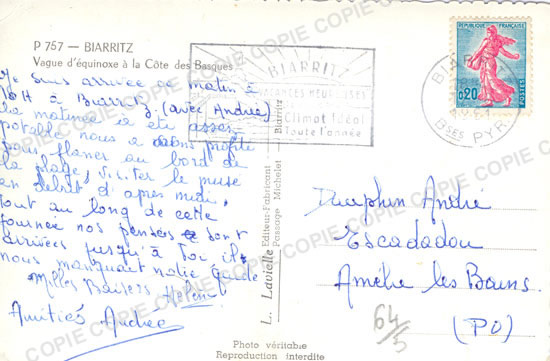 P 757 — BIARRITZ
Vague d'équinoxe à la Côte des Basques
Je suis arrivée ce matin à
à Biarritz (avec Andrée)
la matinée a été assez
potable, nous avons profité
pour flaner au bord de
la plage, visiter le musée
en début d'après midi,
tout au long de cette
journée nos pensées sont
arrivées jusqu'à toi, il
nous manquait notre guide
Milles Baisers Hélène
Amitiés Andrée
BIARRITZ
VACANCES HEUREUSES
Climat Idéal
Toute l'année
L. Lavielle Editeur-Fabricant
Passage Michelet Biarritz
REPUBLIQUE FRANÇAISE
0,20
POSTES
BSES PYR
Dauphin André
Escadadou
Amélie les Bains
(PO)
64/5
Photo véritable
Reproduction interdite
COPIE COPIE COPIE COPIE